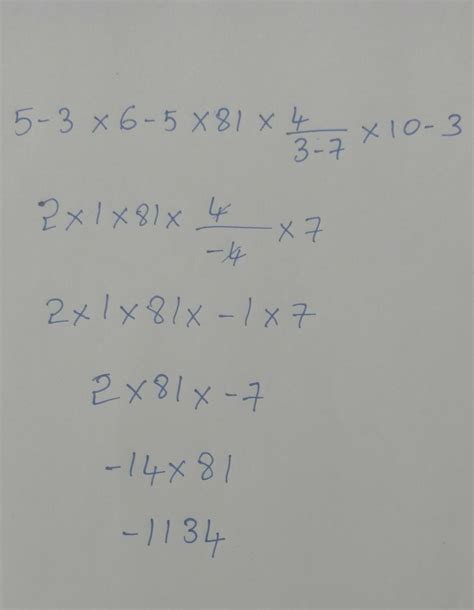 5-3 × 6-5 × 81 × 4/3-7 × 10-3
2×1×81× 4/-4 ×7
2×1×81× -1×7
2×81× -7
-14×81
-1134